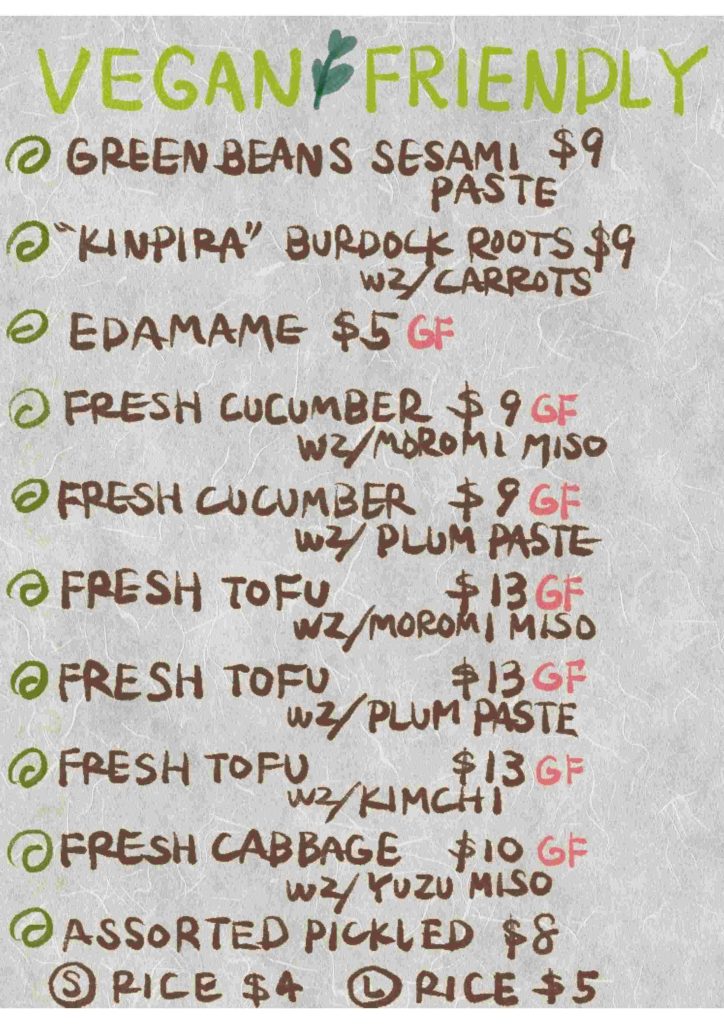 VEGAN FRIENDLY
GREEN BEANS SESAMI $9
PASTE
"KINPIRA" BURDOCK ROOTS $9
WZ/CARROTS
EDAMAME $5 GF
FRESH CUCUMBER $9 GF
WZ/MOROMI MISO
FRESH CUCUMBER $9 GF
WZ/PLUM PASTE
FRESH TOFU $13 GF
WZ/MOROMI MISO
FRESH TOFU $13 GF
WZ/PLUM PASTE
FRESH TOFU $13 GF
WZ/KIMCHI
FRESH CABBAGE $10 GF
WZ/YUZU MISO
ASSORTED PICKLED $8
S RICE $4 L RICE $5